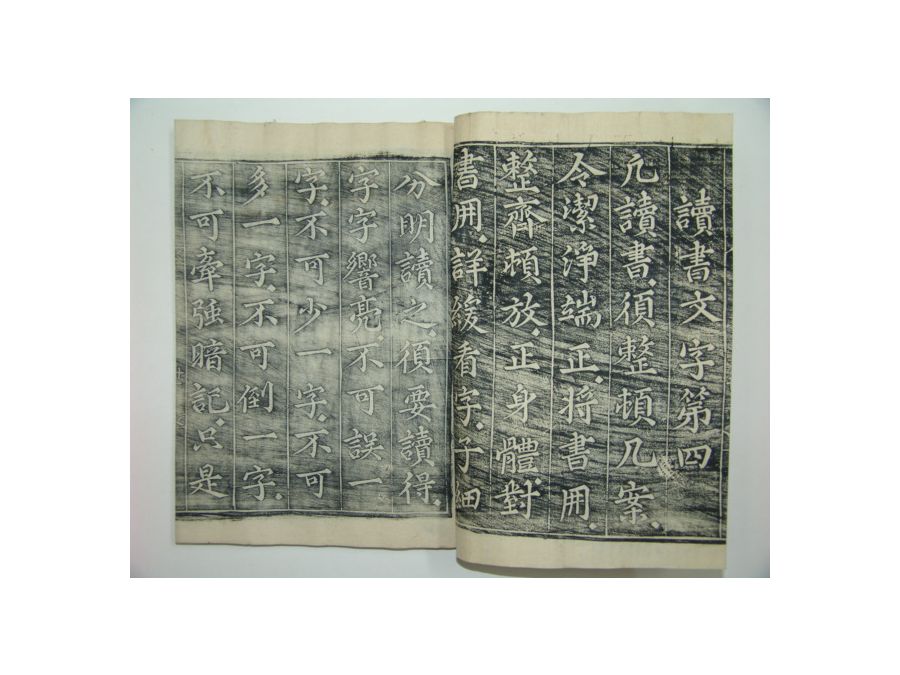 讀書文字第四
凡讀書須整頓几案
令潔淨端正將書冊
整齊頓放正身體對
書冊詳緩看字子細
分明讀之須要讀得
字字響亮不可誤一
字不可少一字不可
多一字不可倒一字
不可牽强暗記只是